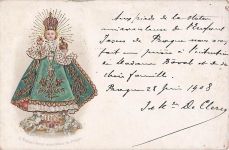 Aux pieds de la statue
miraculeuse de l'Enfant
Jésus de Prague nous avons
fait une prière à l'intention
de Madame Duval et de sa
chère famille.
Prague 28 juin 1908
De Clercq